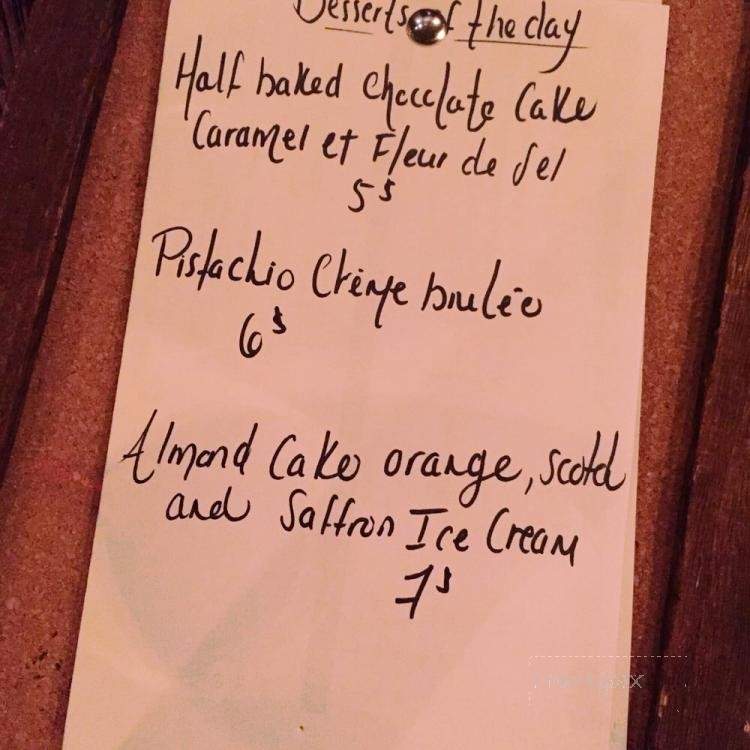 Desserts of the day
Half baked Chocolate Cake
Caramel et Fleur de Sel
5$
Pistachio Crème brulée
6$
Almond Cake orange, scotch
and Saffron Ice Cream
7$